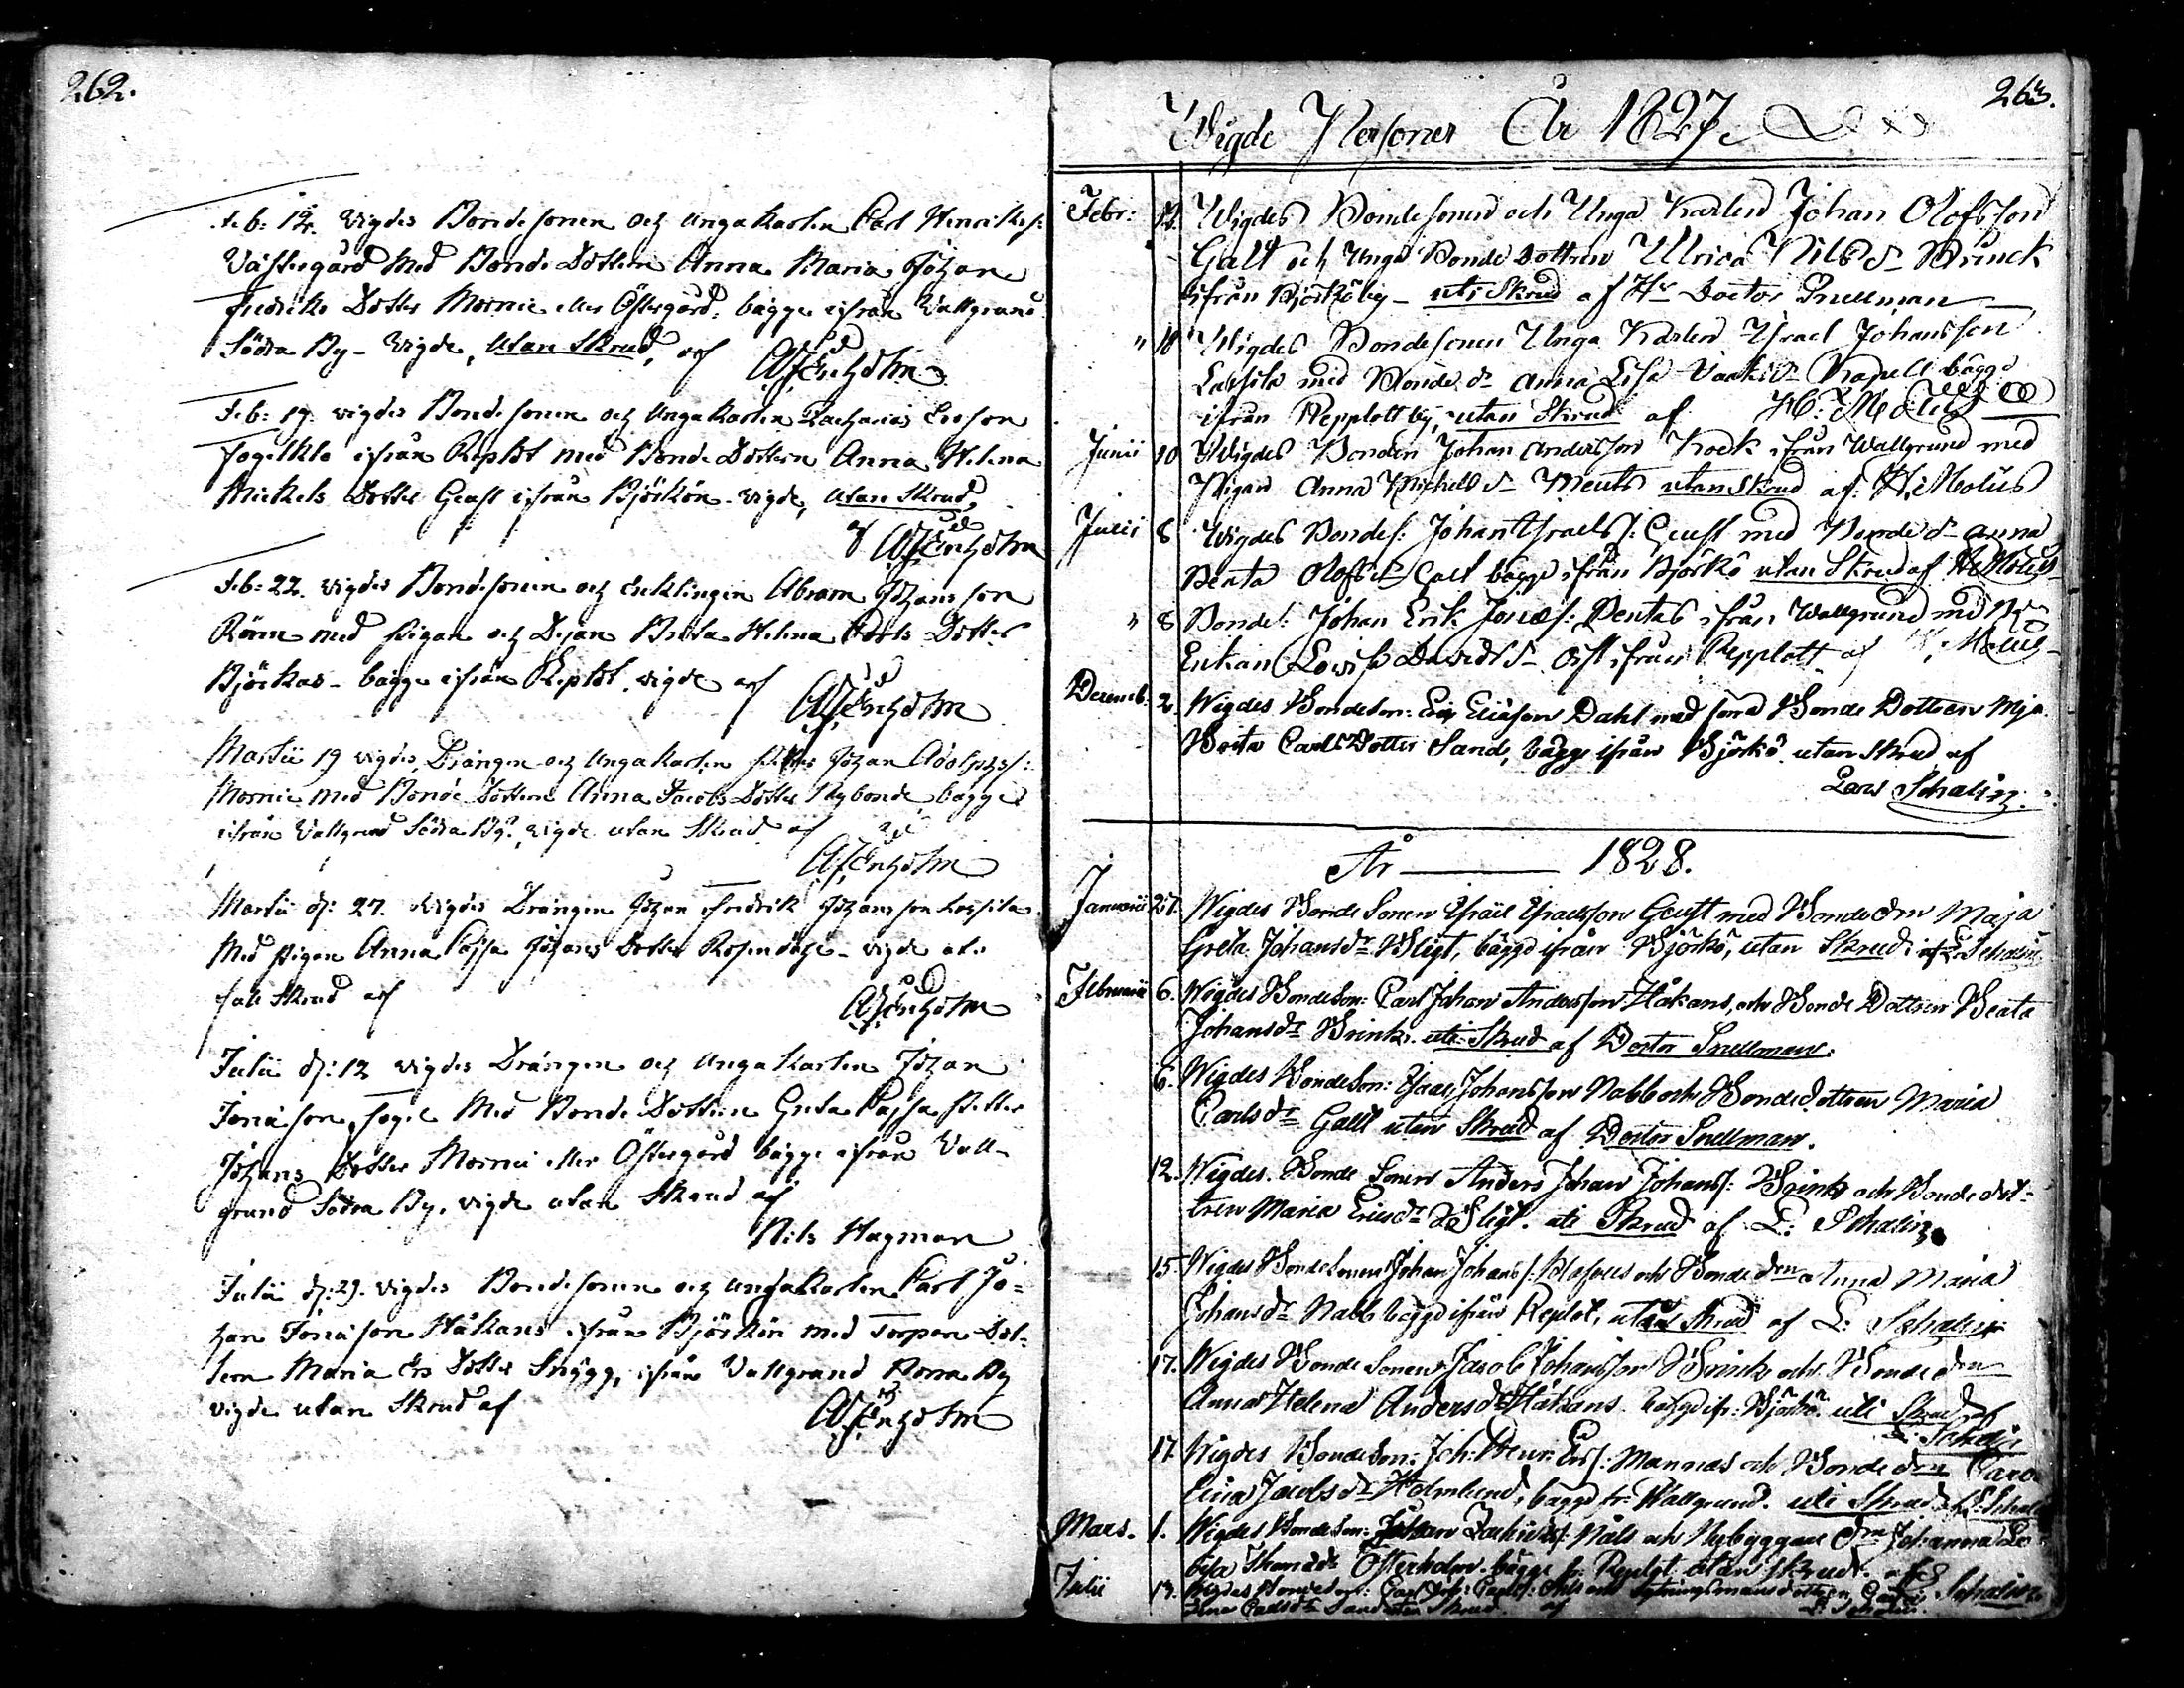 262.
Feb: 12. vigdes Bondesonen och Ungakarlen Carl Henriks s:
Västergård Med Bonde Dottren Anna Maria Johan
Fredriks Dotter Mornie eller Östergård, bägge ifrån Vallgrund
Södra By - Vigde, utan Skrud, af
Feb: 19. vigdes Bondesonen och Unga karlen Zacharias Ersson
Fogelklo ifrån Replot med Bonde Dottren Anna Helena
Mickels Dotter Geust ifrån Björkön. Vigde, utan Skrud,
af
Feb: 22. vigdes Bondesonen och Enklingen Abram Johansson
med Pigan och Beata Helena Carls Dotter
Björkas - bägge ifrån Replot, vigde af
Martii 19 vigdes Drängen och Unga karlen Petter Johan Adolphs s:
Mornie med Bonde Dottren Anna Jacobs Dotter Nybonde, bägge
ifrån Vallgrund Södra By. vigde utan Skrud af
Martii d: 27. vigdes Drängen Johan Fredrik Johansson Lassila
Med Pigan Anna Cajsa Johans Dotter Rosendahl - vigde
Skrud af
Julii d: 12 vigdes Drängen och Unga karlen Johan
Jonasson, Fogel Med Bonde Dottren Greta Cajsa Petter
Johans Dotter Mornie eller Östergård bägge ifrån Vall-
grund Södra By, vigde utan Skrud af
Nils Hagman
Julii d: 29. vigdes Bondesonen och Unga karlen Carl Jo=
han Jonasson Håkans ifrån Björkön med Torpare Dot-
tern Maria Ers Dotter Snygg, ifrån Vallgrund Norra By
vigde utan Skrud af
263.
Wigde Personer År 1827.
Febr: 12. Wigdes Bondesonen och Unga Karlen Johan Olofsson
Galt och Unga Bonde Dottren Ulrica Nils dr Brinck
ifrån Björköby - uti Skrud af Hr Doctor Snellman
" 18 Wigdes Bondesonen Unga Karlen Israel Johansson
Lassila med Bonde dr Anna Lisa Kapell bägge
ifrån Repplott by, utan Skrud af H: Melius
Junii 10 Wigdes Bonden Johan Andersson Kock ifrån Wallgrund med
Pigan Anna Michels dr Ments utan Skrud af: H. Melius
Julii 8 Wigdes Bondes: Johan Israels s: Geust med Bonde dr Anna
Beata Olofs dr Galt bägge ifrån Björkö utan Skrud af H. Melius
" 8 Bondes: Johan Erik Jonæ s: Bentas ifrån Wallgrund med
Enkan Lovisa Davids dr ifrån Repplott af H. Melius
Decemb: 2 Wigdes Bondeson: Eric Ericson Dahl med Bonde Dottren Mja
Greta Carls Dotter Sand, bägge ifrån Björkö. utan Skrud af
Lars Schalin.
År 1828.
Januarii 27. Wigdes Bonde Sonen Israel Israelsson Geust med Bonde drn Maja
Greta Johans dr Bligt, bägge ifrån Björkö, utan Skrud: af L. Schalin
Februarii 6. Wigdes Bondeson: Carl Johan Andersson Håkans, och Bonde Dottren Beata
Johans dr Brink. uti Skrud af Doctor Snellman.
6. Wigdes Bondeson: Isaac Johansson Nabb och Bondedottren Maria
Carls dr Gallt utan Skrud af Doctor Snellman.
12. Wigdes Bonde Sonen Anders Johan Johans s: Brink och Bonde dot-
tren Maria Erics dr Bligt. uti Skrud af L: Schalin
15 Wigdes Bonde Sonen Johan Johans s: och Bonde drn Anna Maria
Johans dr Nabb bägge ifrån Replot, utan Skrud af L: Schalin
17. Wigdes Bonde Sonen Jacob Johansson Brink och Bonde drn
Anna Helena Anders dr Håkans. bägge ifr: Björkö. uti Skrud af
L: Schalin
17. Wigdes Bondeson: Joh: Henr: Ers s: Mannas och Bonde drn Caro
lina Jacobs dr Holmlund, bägge fr: Wallgrund. uti Skrud L: Schalin
Mars. 1. Wigdes Bondeson: Johan Nåls och Nybyggare drn Johanna Lo
visa Österholm. bägge fr: Replot utan Skrud. af L Schalin.
Julii 13. Wigdes
Carls dr Sand utan Skrud. af L Schalin.